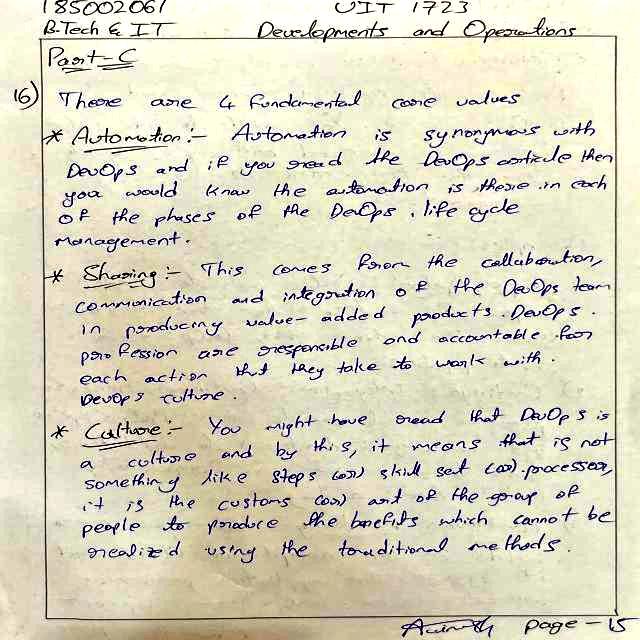 185002061 UIT 1723
B.Tech & IT Developments and Operations
Part-C
16) There are 4 fundamental core values
* Automation:- Automation is synonymous with
DevOps and if you read the DevOps article then
you would know the automation is there in each
of the phases of the DevOps. life cycle
management.
* Sharing:- This comes from the collaboration,
communication and integration of the DevOps team
in producing value-added products. DevOps.
profession are responsible and accountable for
each action that they take to work with.
DevOps culture.
* Culture:- You might have read that DevOps is
a culture and by this, it means that is not
something like steps (or) skill set (or) processor,
it is the customs (or) art of the group of
people to produce the benefits which cannot be
realized using the traditional methods.
page-15